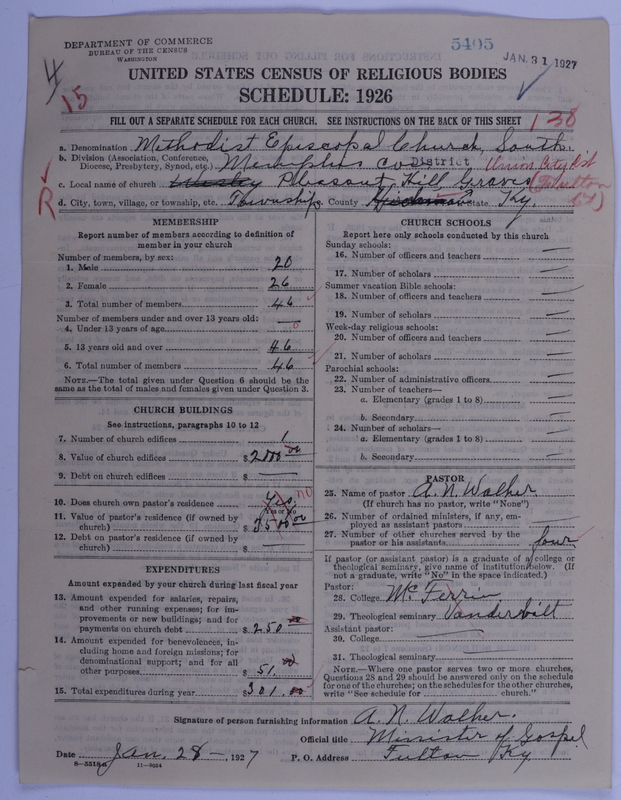 DEPARTMENT OF COMMERCE
BUREAU OF THE CENSUS
WASHINGTON
5405
JAN. 31 1927
4
15
UNITED STATES CENSUS OF RELIGIOUS BODIES
SCHEDULE: 1926
FILL OUT A SEPARATE SCHEDULE FOR EACH CHURCH. SEE INSTRUCTIONS ON THE BACK OF THIS SHEET
138
a. Denomination Methodist Episcopal Church, South.
b. Division (Association, Conference, Diocese, Presbytery, Synod, etc.) Memphis Co District Union City Dist
c. Local name of church Wesley Pleasant Hill, Graves (Fulton
R
d. City, town, village, or township, etc. Township County Hickman State Ky.
MEMBERSHIP
Report number of members according to definition of
member in your church
Number of members, by sex:
1. Male 20
2. Female 26
3. Total number of members 46
Number of members under and over 13 years old:
4. Under 13 years of age — 0
5. 13 years old and over 46
6. Total number of members 46
NOTE.—The total given under Question 6 should be the
same as the total of males and females given under Question 3.
CHURCH BUILDINGS
See instructions, paragraphs 10 to 12
7. Number of church edifices 1
8. Value of church edifices $2000 00
9. Debt on church edifices $ —
10. Does church own pastor's residence Yes no
Yes or No
11. Value of pastor's residence (if owned by
church) $3500 00
12. Debt on pastor's residence (if owned by
church) $ —
EXPENDITURES
Amount expended by your church during last fiscal year
13. Amount expended for salaries, repairs,
and other running expenses; for im-
provements or new buildings; and for
payments on church debt $250 00
14. Amount expended for benevolences, in-
cluding home and foreign missions; for
denominational support; and for all
other purposes $51.00
15. Total expenditures during year $301.00
CHURCH SCHOOLS
Report here only schools conducted by this church
Sunday schools:
16. Number of officers and teachers —
17. Number of scholars —
Summer vacation Bible schools:
18. Number of officers and teachers —
19. Number of scholars —
Week-day religious schools:
20. Number of officers and teachers —
21. Number of scholars —
Parochial schools:
22. Number of administrative officers —
23. Number of teachers—
a. Elementary (grades 1 to 8) —
b. Secondary —
24. Number of scholars—
a. Elementary (grades 1 to 8) —
b. Secondary —
PASTOR
25. Name of pastor A. N. Walker
(If church has no pastor, write "None")
26. Number of ordained ministers, if any, em-
ployed as assistant pastors —
27. Number of other churches served by the
pastor or his assistants four
If pastor (or assistant pastor) is a graduate of a college or
theological seminary, give name of institution below. (If
not a graduate, write "No" in the space indicated.)
Pastor:
28. College McFerrin
29. Theological seminary Vanderbilt
Assistant pastor:
30. College —
31. Theological seminary —
NOTE.—Where one pastor serves two or more churches,
Questions 28 and 29 should be answered only on the schedule
for one of the churches; on the schedules for the other churches,
write "See schedule for ............ church."
Signature of person furnishing information A. N. Walker.
Official title Minister of Gospel
Date Jan. 28 -, 1927 P. O. Address Fulton Ky
8-5518a 11-9064